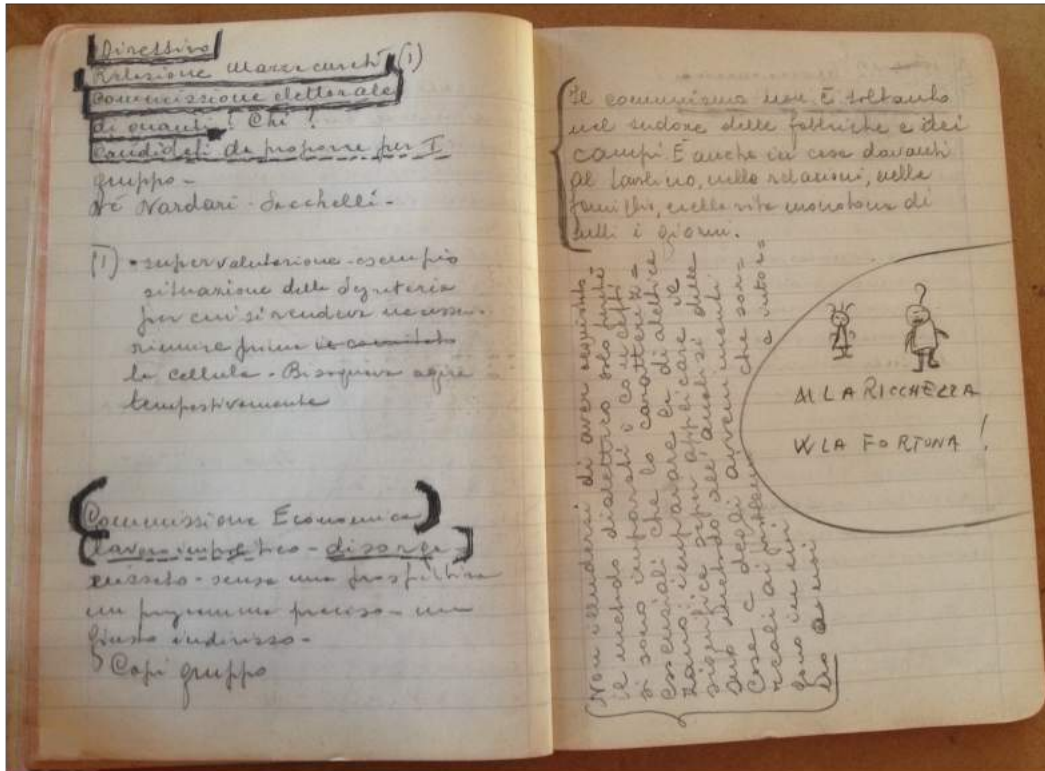 Direttivo
Relazione Mazzacurati (1)
Commissione elettorale
di quanti! Chi!
Candidati da proporre per I
gruppo -
Nardari - Sacchelli -
(1) • supervalutazione - esempio
situazione della Segreteria
per cui si rendeva necess.
riunire prima il comitato
la cellula - Bisognava agire
tempestivamente
Commissione Economica
lavoro - disorga-
nizzato - senza una prospettiva
un programma preciso - un
giusto indirizzo -
Capi gruppo
Il comunismo non È soltanto
nel sudore delle fabbriche e dei
campi È anche in casa davanti
al tavolino, nelle relazioni, nella
famiglia, nella vita monotona di
tutti i giorni.
Non illudersi di aver acquisito
il metodo dialettico solo perché
si sono imparati i concetti
essenziali che lo caratteriz=
zano; imparare la dialettica
significa saper applicare il
suo metodo all'analisi delle
cose e degli avvenimenti
ai che son=
intor=
a noi
M LA RICCHEZZA
W LA FORTUNA!